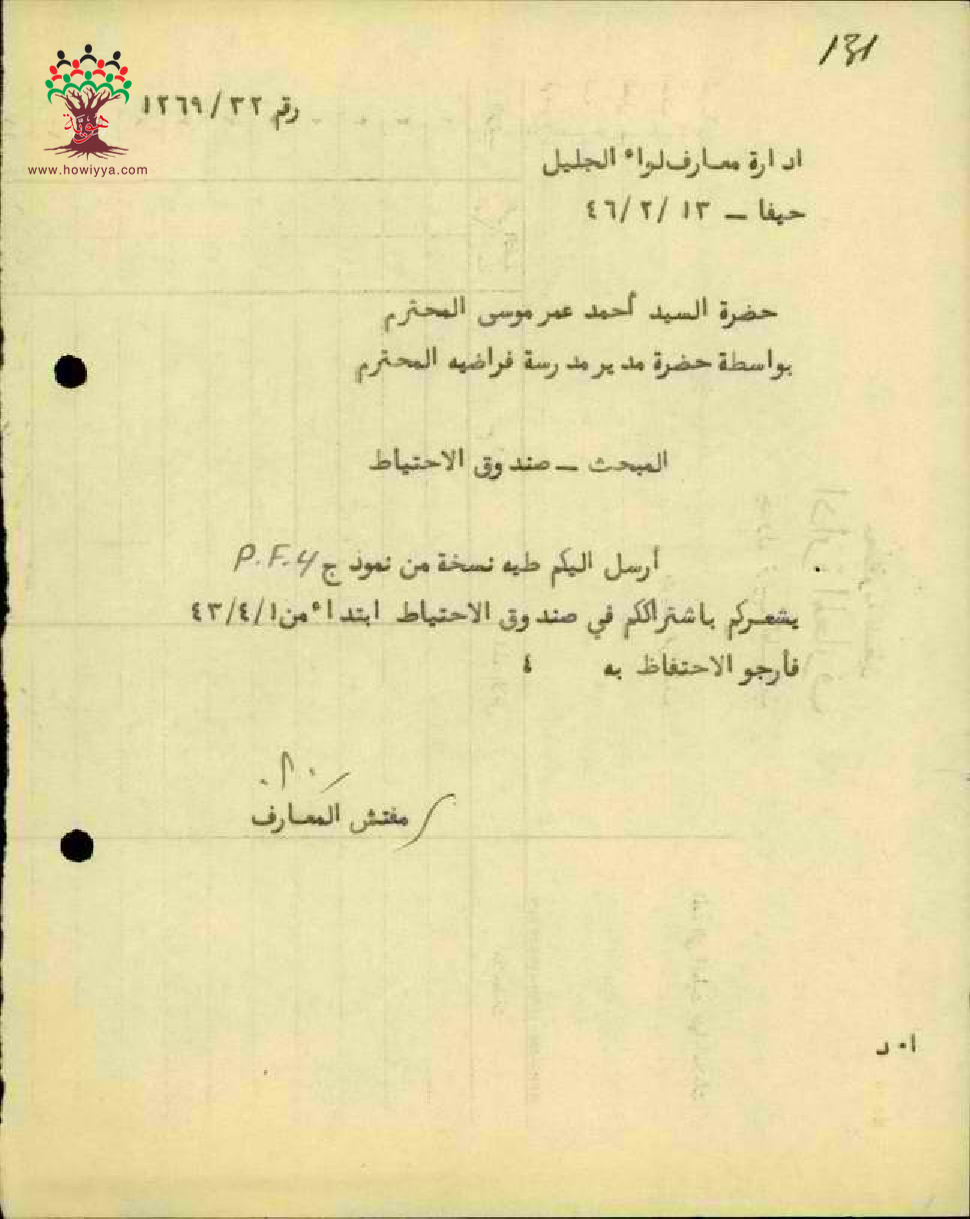 131
رقم ٣٢/ ١٢٦٩
هوية
www.howiyya.com
ادارة معارف لواء الجليل
حيفا – ١٣ /٢ /٤٦
حضرة السيد أحمد عمر موسى المحترم
بواسطة حضرة مدير مدرسة فراضيه المحترم
المبحث – صندوق الاحتياط
أرسل اليكم طيه نسخة من نموذج P.F.4
يشعركم باشتراككم في صندوق الاحتياط ابتداء من ٤٣/٤/١
فأرجو الاحتفاظ به ٤
مفتش المعارف
ا٠ د